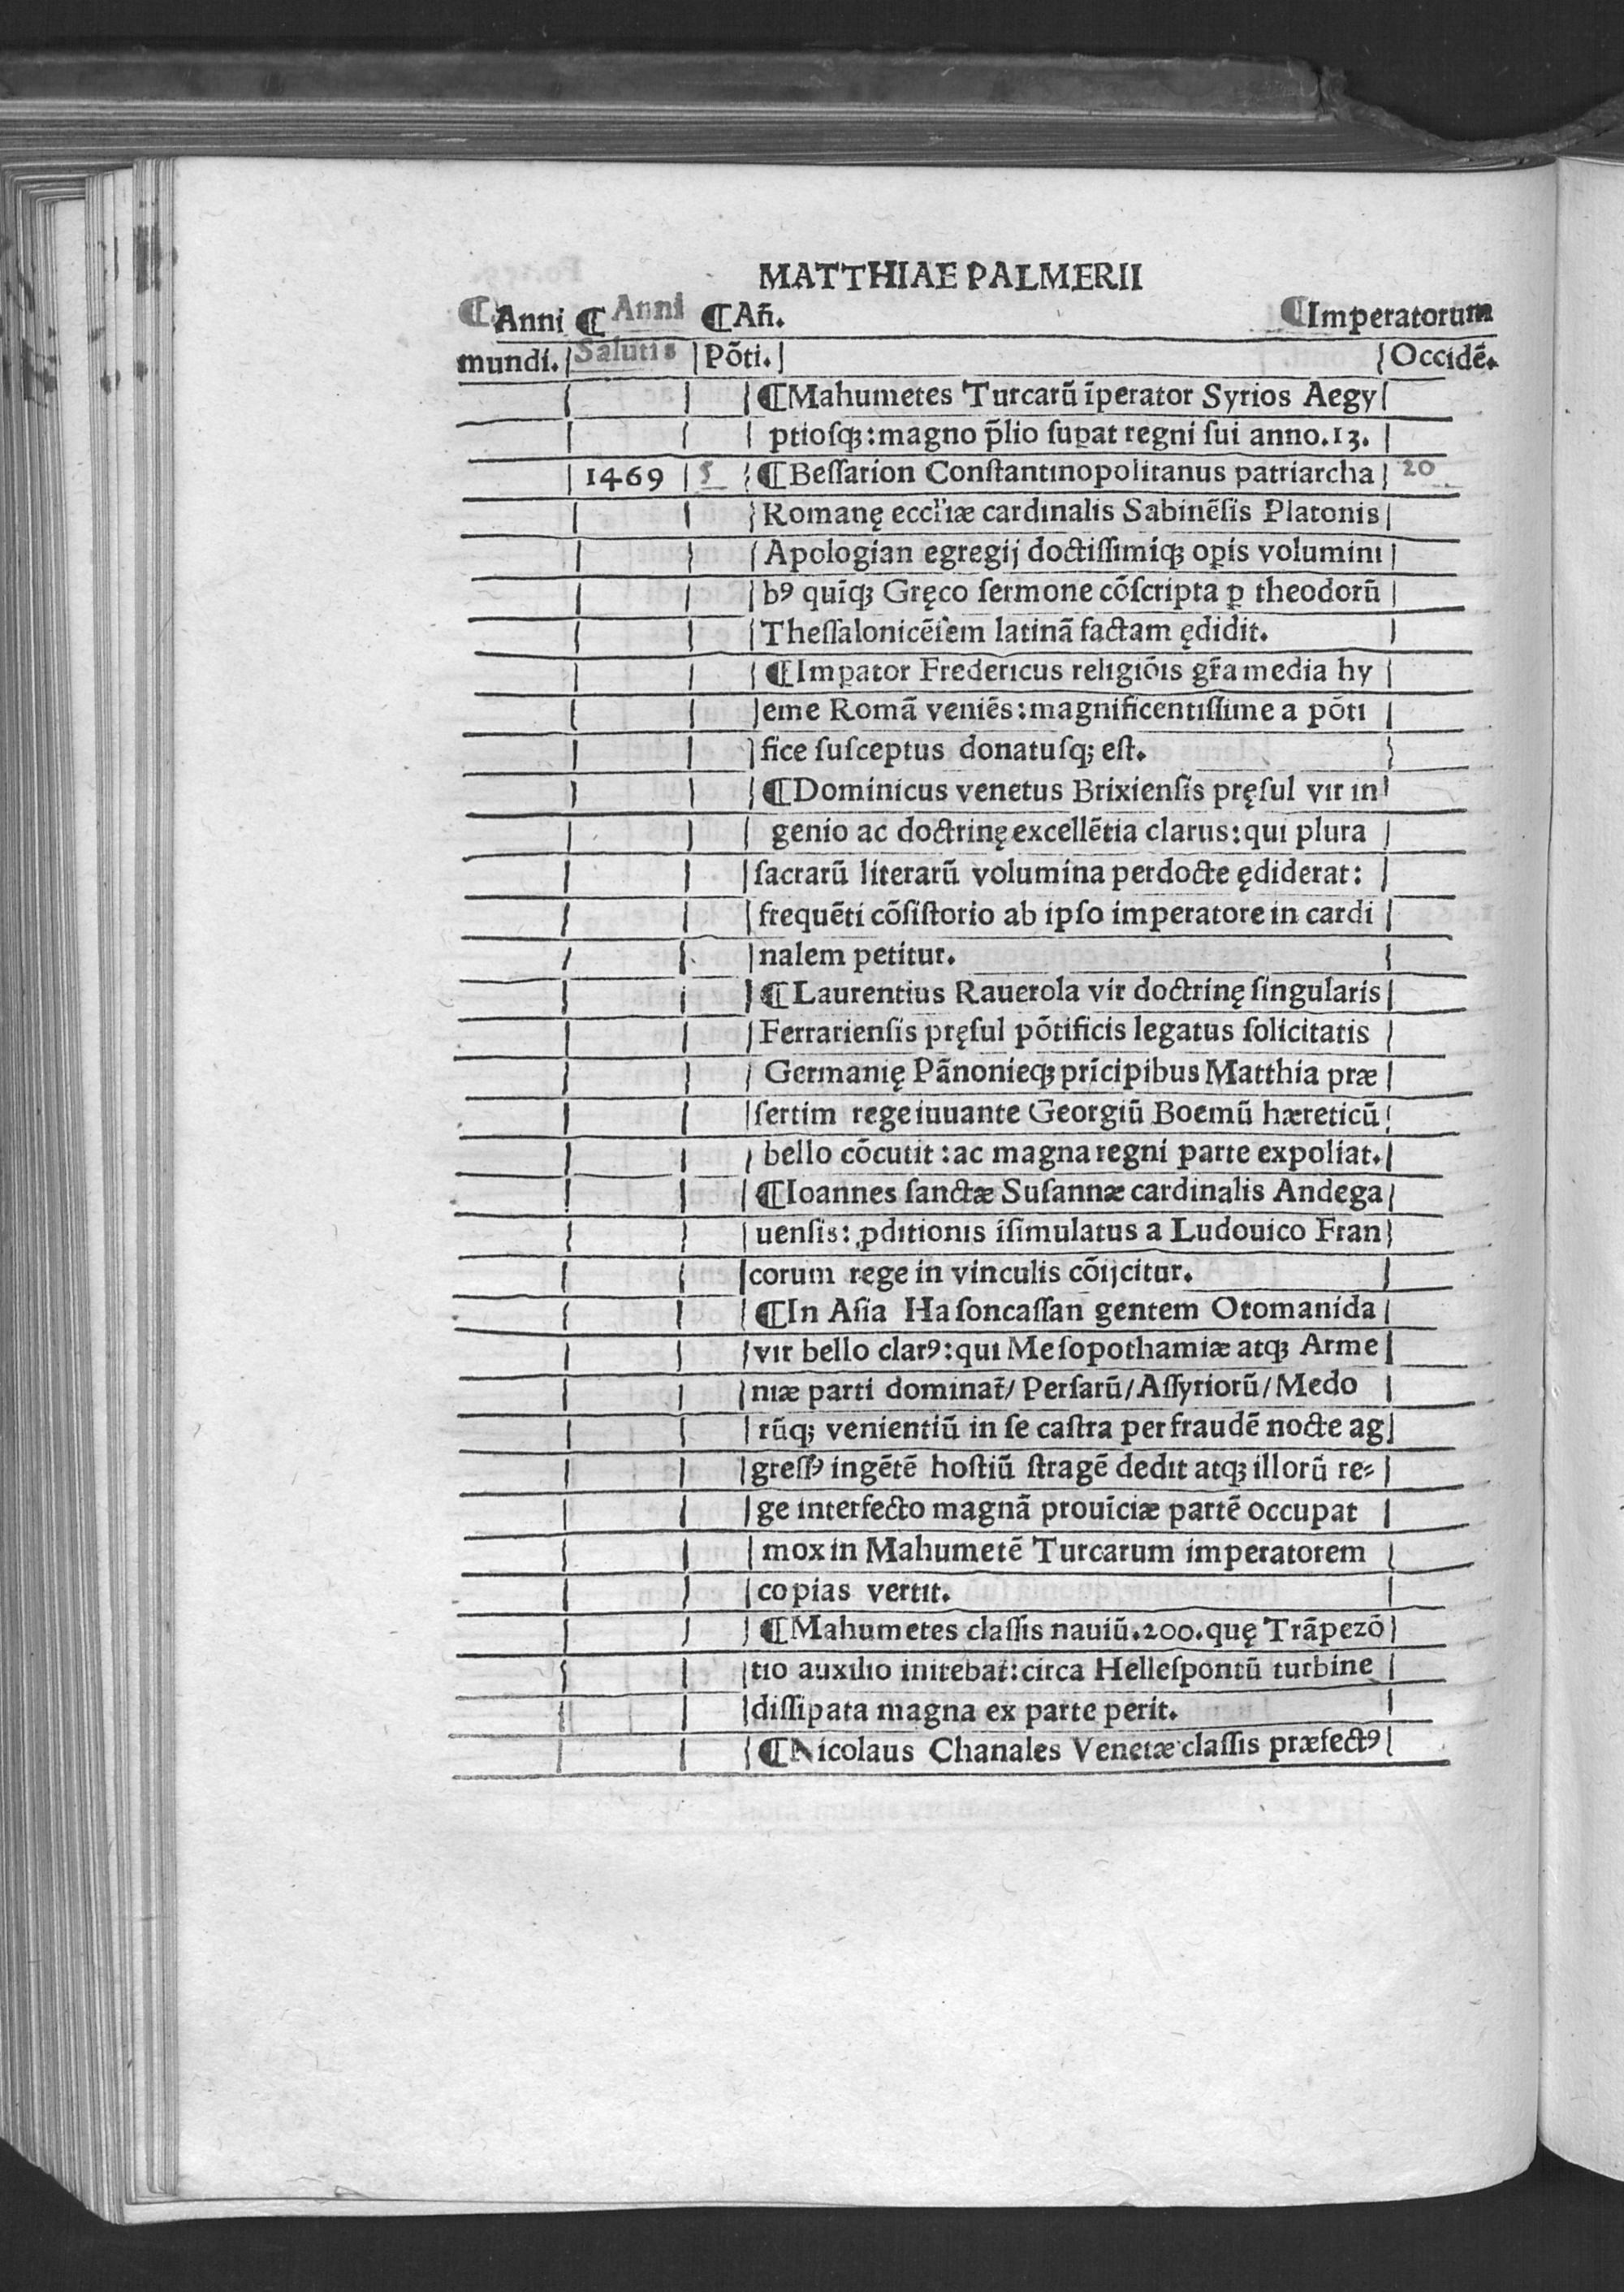 MATTHIAE PALMERII
¶Anni ¶Anni ¶Añ. ¶Imperatorum
mundi. Salutis Põti. Occidẽ.
¶Mahumetes Turcarũ ĩperator Syrios Aegy
ptiosqꝫ: magno p̃lio suꝑat regni sui anno.13.
1469 5 ¶Bessarion Constantinopolitanus patriarcha 20
Romanę eccl'iæ cardinalis Sabinẽsis Platonis
Apologian egregij doctissimiqꝫ oꝑis volumini
bꝰ quĩqꝫ Gręco sermone cõscripta ꝑ theodorũ
Thessalonicẽsem latinã factam ędidit.
¶Imꝑator Fredericus religiõis gr̃a media hy
eme Romã veniẽs: magnificentissime a põti
fice susceptus donatusqꝫ est.
¶Dominicus venetus Brixiensis pręsul vir in
genio ac doctrinę excellẽtia clarus: qui plura
sacrarũ literarũ volumina perdocte ędiderat:
frequẽti cõsistorio ab ipso imperatore in cardi
nalem petitur.
¶Laurentius Rauerola vir doctrinę singularis
Ferrariensis pręsul põtificis legatus solicitatis
Germanię Pãnonieqꝫ prĩcipibus Matthia præ
sertim rege iuuante Georgiũ Boemũ hæreticũ
bello cõcutit: ac magna regni parte expoliat.
¶Ioannes sanctæ Susannæ cardinalis Andega
uensis: ꝓditionis ĩsimulatus a Ludouico Fran
corum rege in vinculis cõijcitur.
¶In Asia Hasoncassan gentem Otomanida
vir bello clarꝰ: qui Mesopothamiæ atqꝫ Arme
niæ parti dominat̃/ Persarũ/ Assyriorũ/ Medo
rũqꝫ venientiũ in se castra per fraudẽ nocte ag
gressꝰ ingẽtẽ hostiũ stragẽ dedit atqꝫ illorũ re⸗
ge interfecto magnã prouĩciæ partẽ occupat
mox in Mahumetẽ Turcarum imperatorem
copias vertit.
¶Mahumetes classis nauiũ.200.quę Trãpezõ
tio auxilio initebat̃: circa Hellespontũ turbine
dissipata magna ex parte perit.
¶Nicolaus Chanales Venetæ classis præfectꝰ